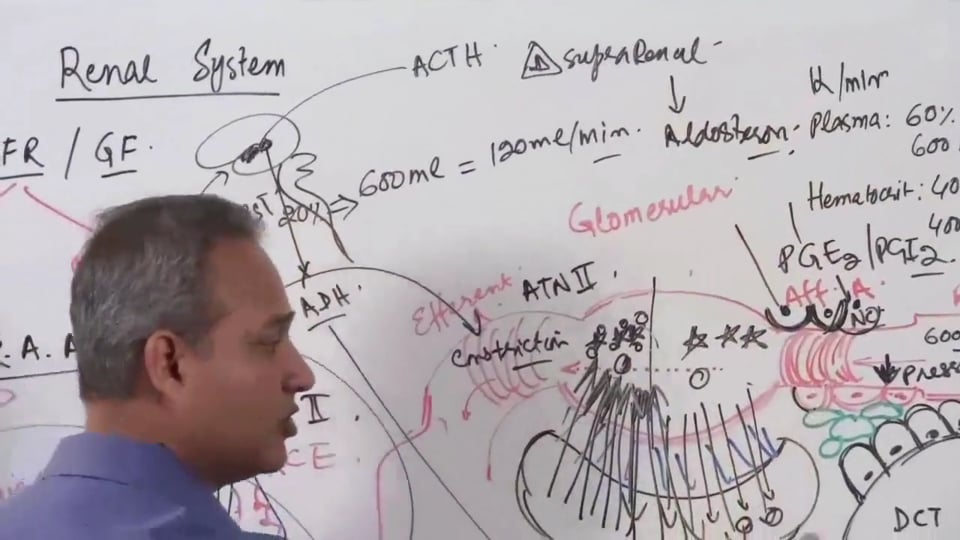 Renal System
ACTH
supraRenal
Aldosteron
ml/min
Plasma: 60%
600
FR / GF
20% ⇒ 600ml = 120ml/min
Hematocrit: 40
400
Glomerular
PGE2/PGI2
Aff. A.
NO
ADH
Efferent
ATN II
constriction
600
press
R. A. A
II
CE
DCT